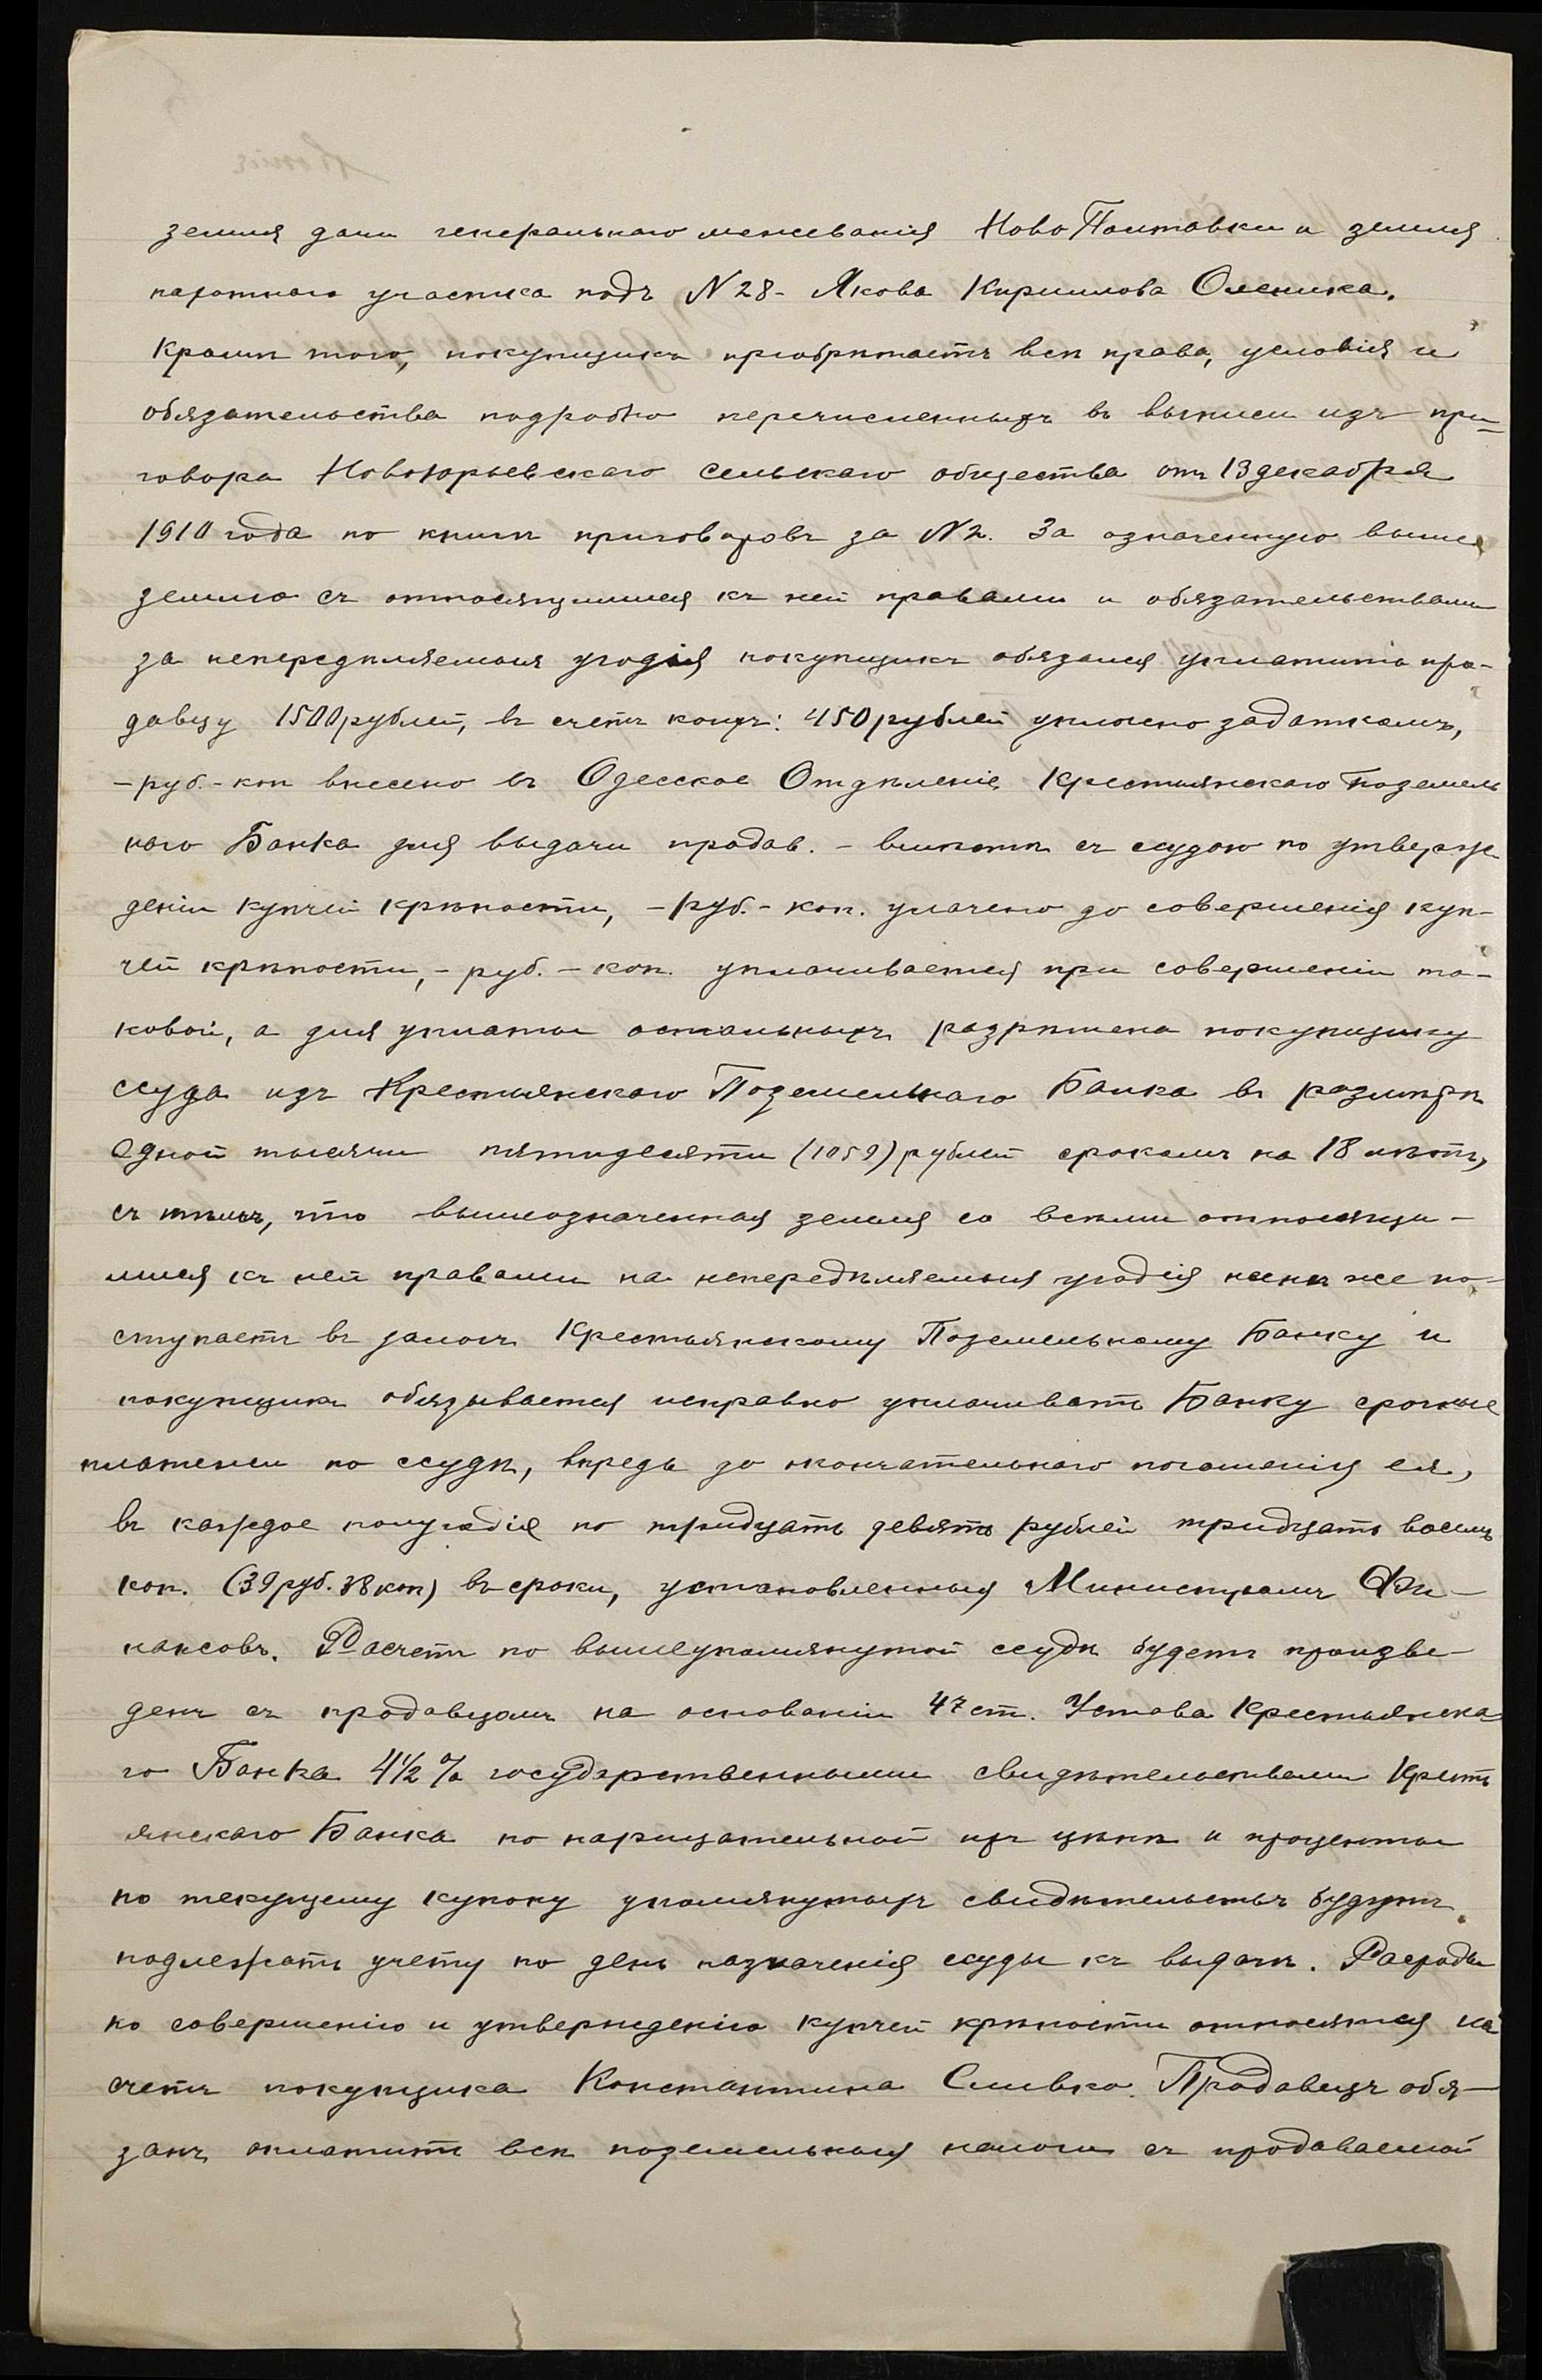 земля дачи генеральнаго межеванія Ново Полтавки и земля
пахотнаго участка подъ N 28 - Якова Кириллова Оленика.
Кромѣ того, покупщикъ пріобрѣтаетъ всѣ права, условія и
обязательства подробно перечисленныхъ въ выписи изъ при=
говора Новоюрьевскаго сельскаго общества отъ 13 декабря
1910 года по книгѣ приговоровъ за N 2. За означенную выше
землю съ относящимися къ ней правами и обязательствами
за непередѣляемыя угодія покупщикъ обязался уплатить про-
давцу 1500 рублей, въ счетъ коихъ: 450 рублей уплочено задаткомъ,
- руб. - коп внесено въ Одесское Отдѣленіе Крестьянскаго Поземель
наго Банка для выдачи продав. - вмѣстѣ съ ссудою по утверж
деніи купчей крѣпости, - руб. - коп. улачено до совершенія куп-
чей крѣпости, - руб. - коп. уплачивается при совершеніи та-
ковой, а для уплаты остальныхъ разрѣшена покупщику
ссуда изъ Крестьянскаго Поземельнаго Банка въ размѣрѣ
Одной тысячи пятидесяти (1050) рублей срокомъ на 18 лѣтъ,
съ тѣмъ, что вышеозначенная земля со всѣми относящи-
мися къ ней правами на непередѣляемыя угодія нынѣ же по-
ступаетъ въ залогъ Крестьянскому Поземельному Банку и
покупщикъ обязывается исправно уплачивать Банку срочные
платежи по ссудѣ, впредь до окончательнаго погашенія ея,
въ каждое полугодіе по тридцать девять рублей тридцать восемь
коп. (39 руб. 38 коп) въ сроки, установленныя Министромъ Фи-
нансовъ. Расчетъ по вышеупомянутой ссудѣ будетъ произве-
денъ съ продавцомъ на основаніи 47 ст. Устава Крестьянска
го Банка 4½ % государственными свидѣтельствами Кресть
янскаго Банка по нарицательной ихъ цѣнѣ и проценты
по текущему купону упомянутыхъ свидѣтельствъ будутъ
подлежать учету по день назначенія ссуды къ выдачѣ. Расходы
по совершенію и утвержденію купчей крѣпости относятся на
счетъ покупщика Константина Сливко. Продавецъ обя-
занъ оплатить всѣ поземельныя налоги съ продаваемой